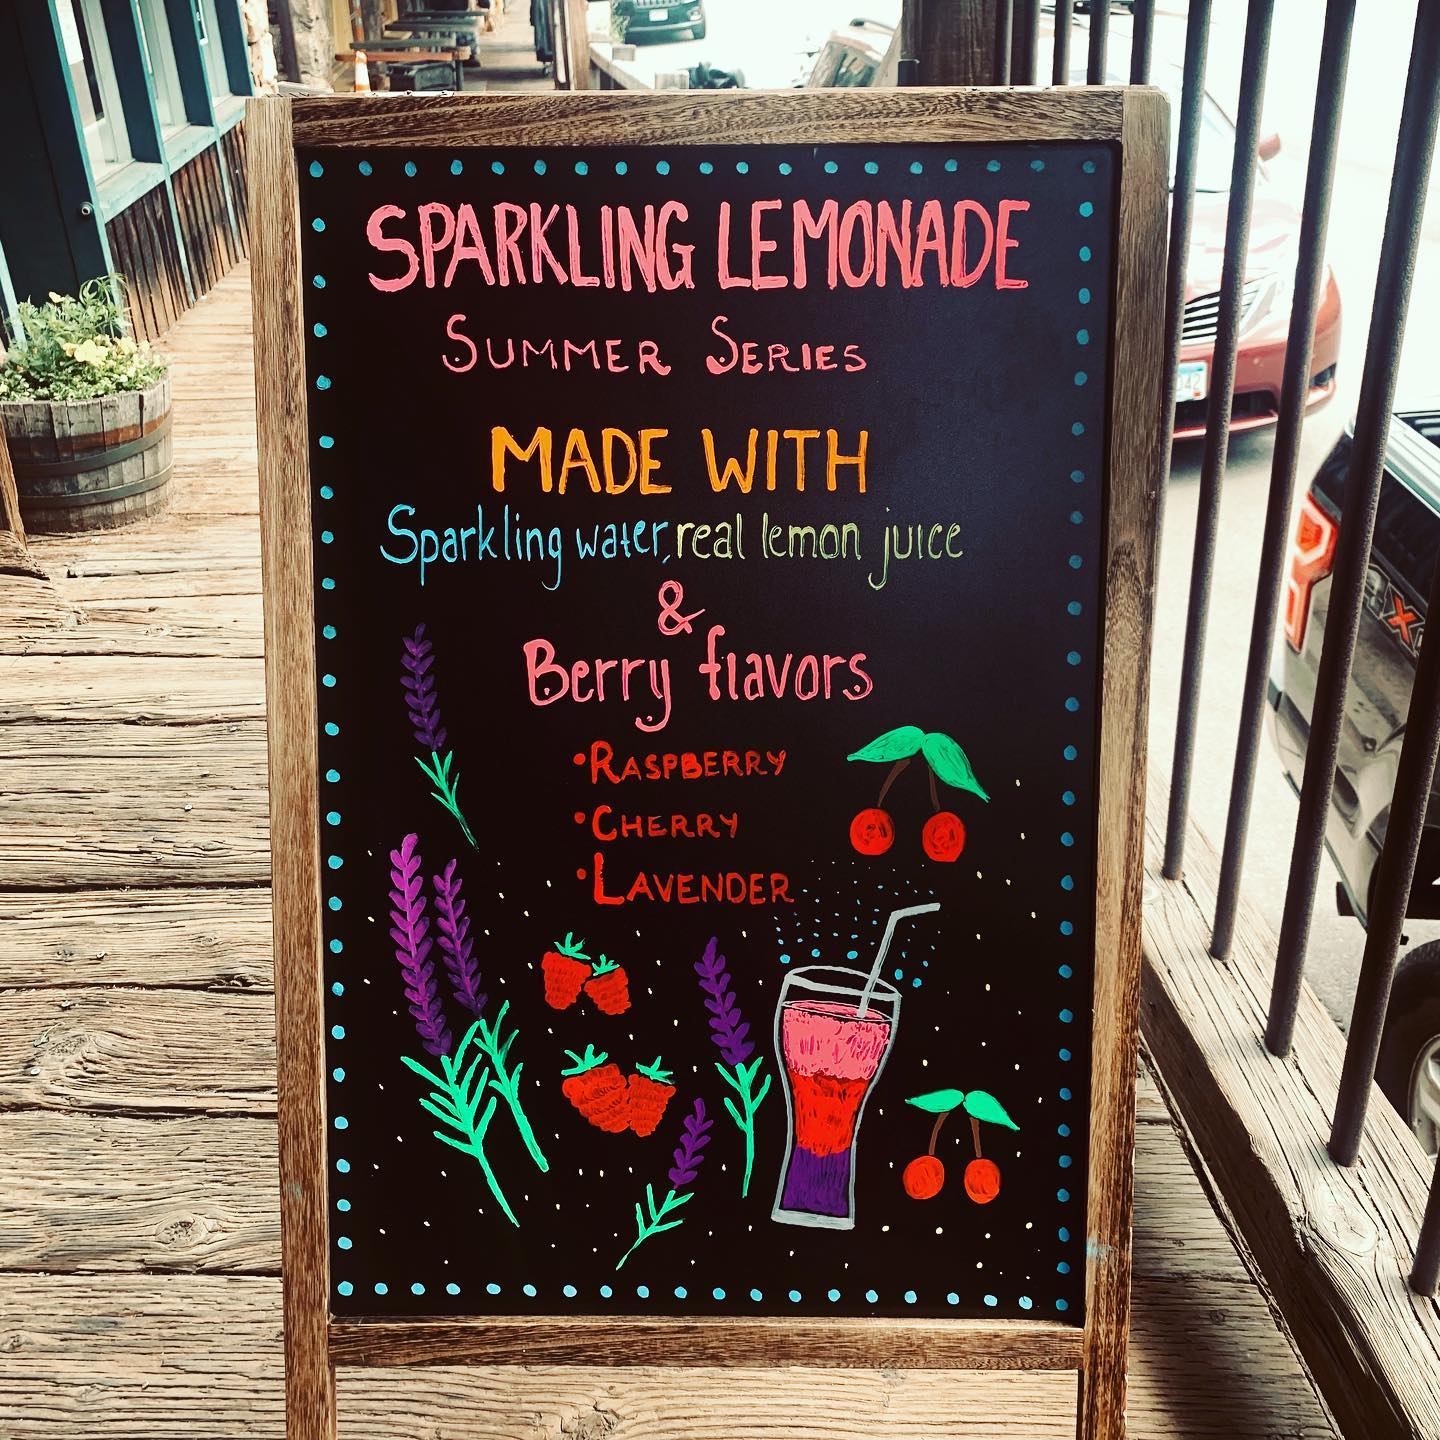 SPARKLING LEMONADE
SUMMER SERIES
MADE WITH
Sparkling water, real lemon juice
&
Berry flavors
•RASPBERRY
•CHERRY
•LAVENDER